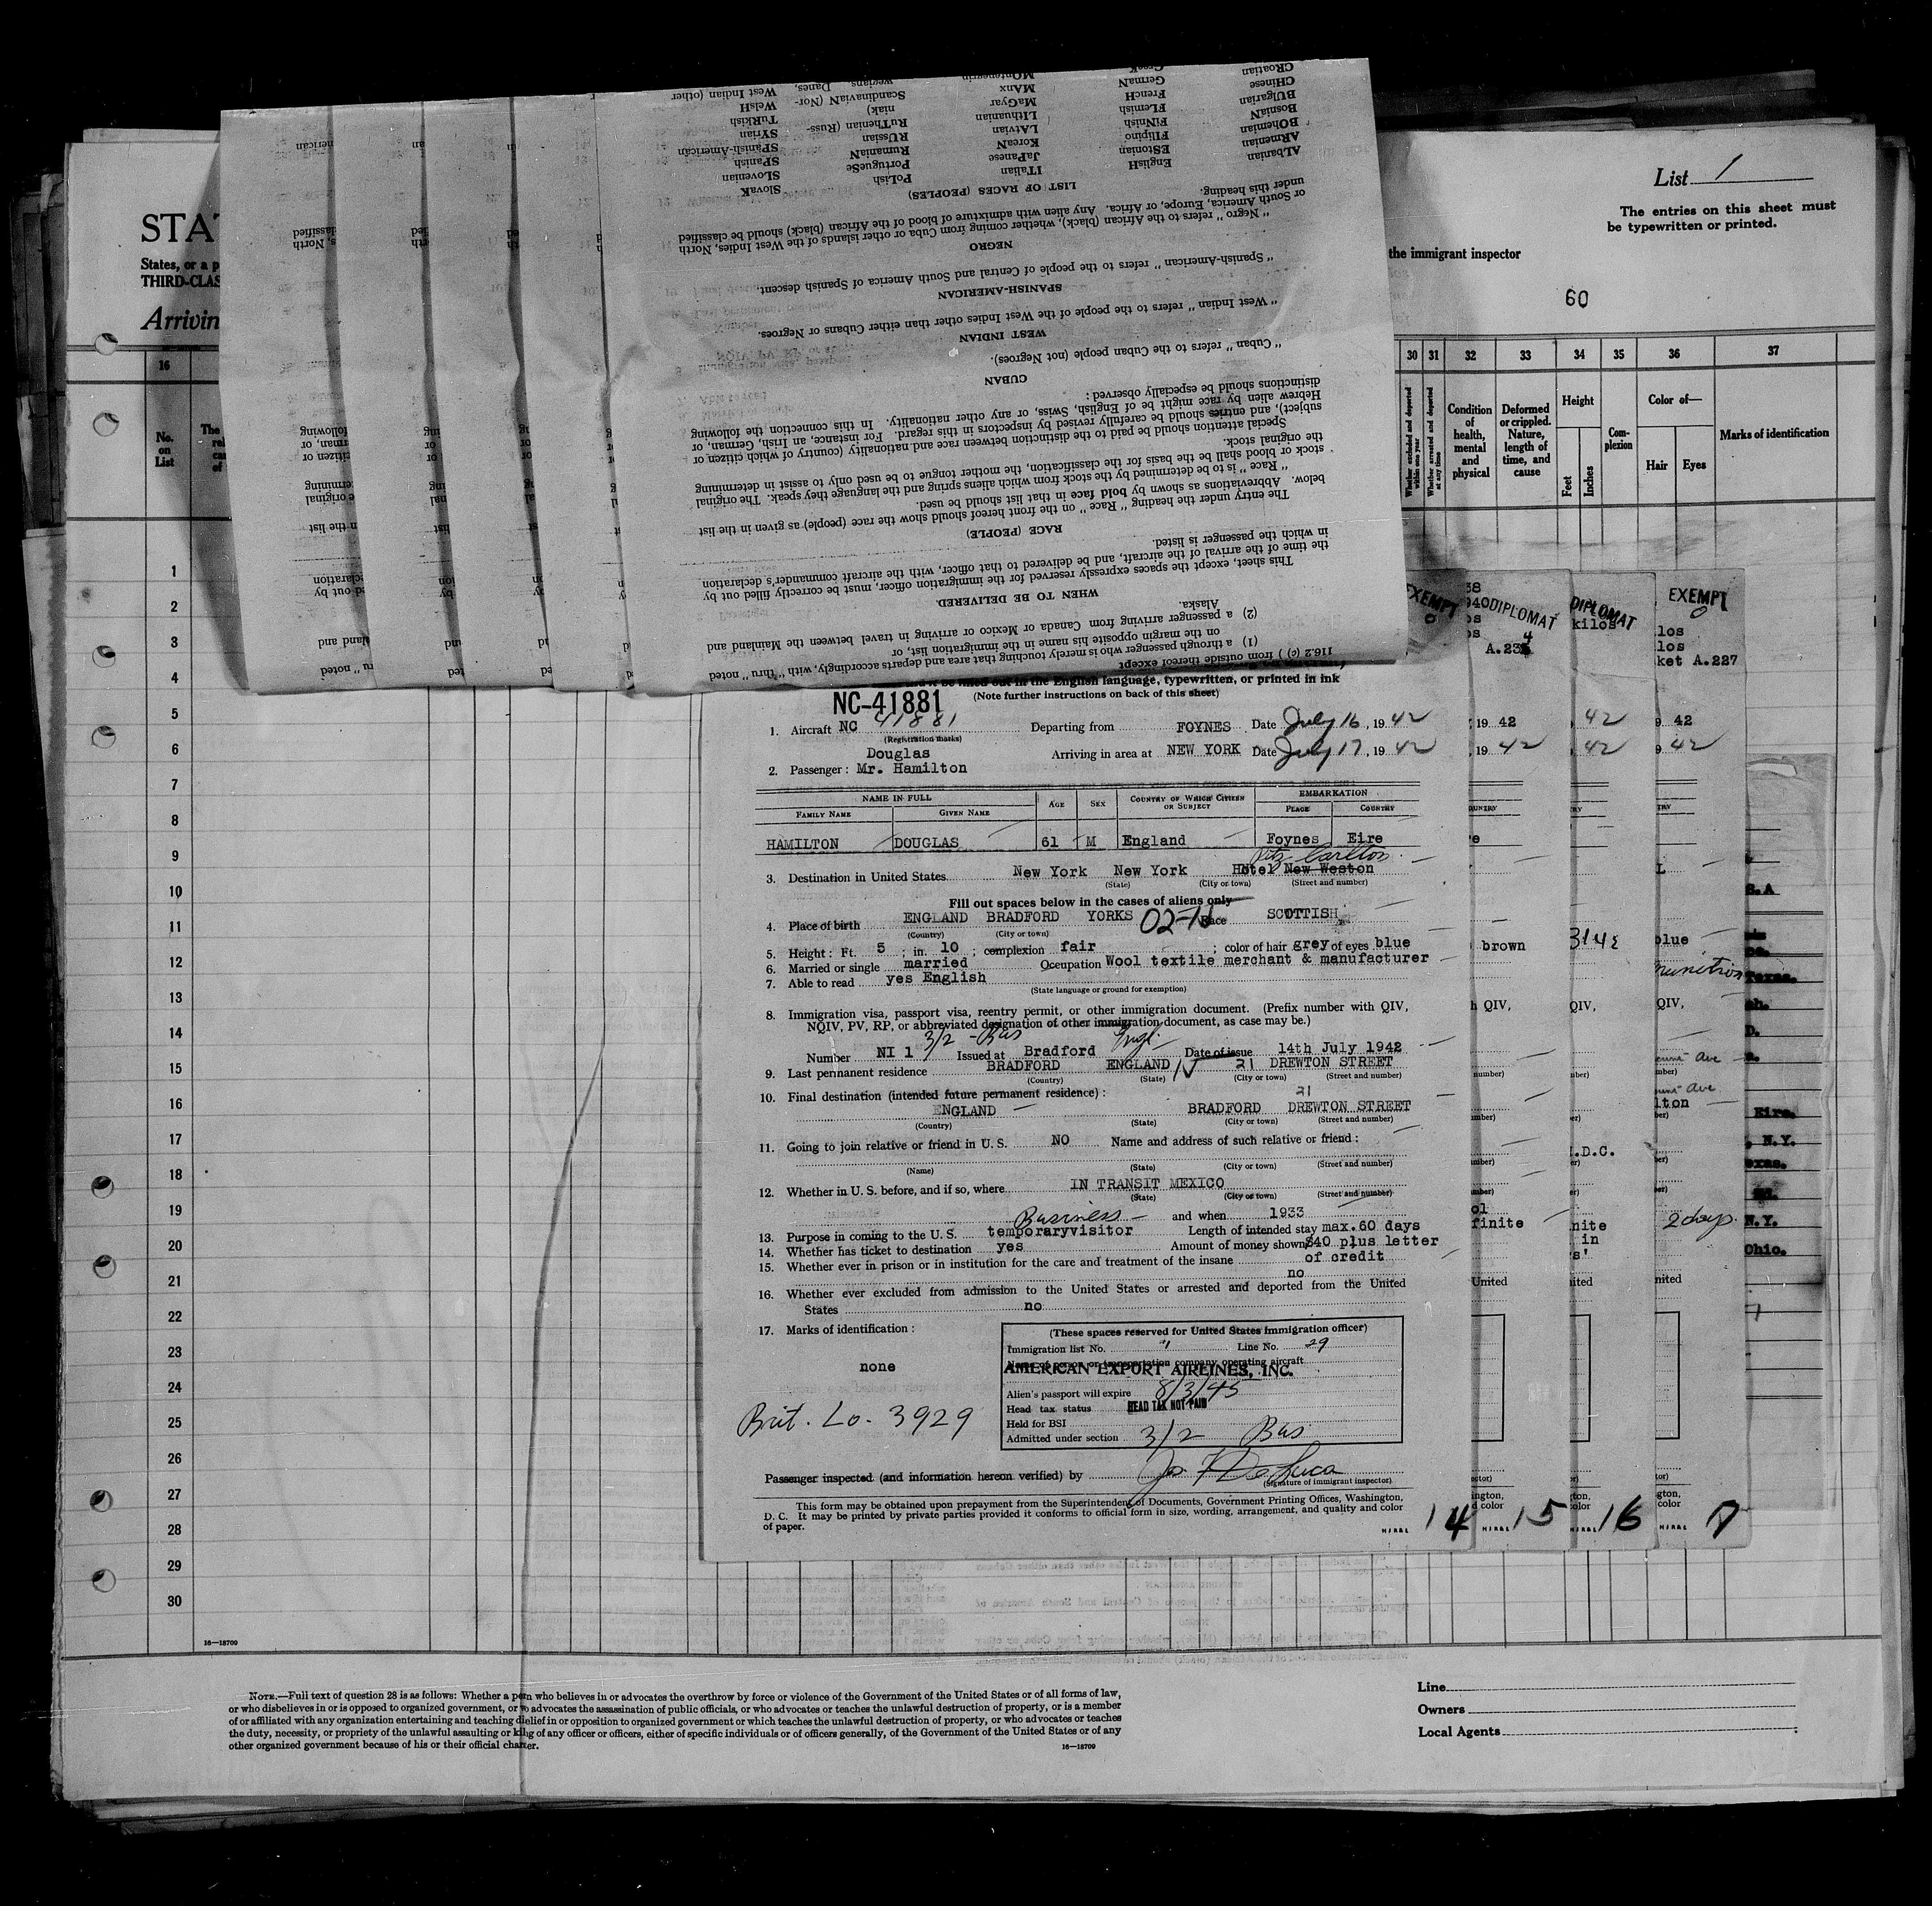 List 1
The entries on this sheet must
be typewritten or printed.
the immigrant inspector
60
STA
States, or a p
THIRD-CLAS
Arrivin
16
No.
on
List
30 31 32 33 34 35 36 37
Whether excluded and deported within one year
Whether arrested and deported at any time
Condition of health, mental and physical
Deformed or crippled. Nature, length of time, and cause
Height
Feet
Inches
Com-
plexion
Color of—
Hair
Eyes
Marks of identification
1
2
3
4
5
6
7
8
9
10
11
12
13
14
15
16
17
18
19
20
21
22
23
24
25
26
27
28
29
30
16—18709
116.2 (c) ) from outside thereof except
(1) a through passenger who is merely touching that area and departs accordingly, with "thru" noted
on the margin opposite his name in the immigration list, or
(2) a passenger arriving from Canada or Mexico or arriving in travel between the Mainland and
Alaska.
WHEN TO BE DELIVERED
This sheet, except the spaces expressly reserved for the immigration officer, must be correctly filled out by
the time of the arrival of the aircraft, and be delivered to that officer, with the aircraft commander's declaration
in which the passenger is listed.
RACE (PEOPLE)
The entry under the heading "Race" on the front hereof should show the race (people) as given in the list
below. Abbreviations as shown by bold face in that list should be used.
"Race" is to be determined by the stock from which aliens spring and the language they speak. The original
stock or blood shall be the basis for the classification, the mother tongue to be used only to assist in determining
the original stock.
Special attention should be paid to the distinction between race and nationality (country of which citizen or
subject), and entries should be carefully revised by inspectors in this regard. For instance, an Irish, German, or
Hebrew alien by race might be of English, Swiss, or any other nationality. In this connection the following
distinctions should be especially observed:
CUBAN
"Cuban" refers to the Cuban people (not Negroes).
WEST INDIAN
"West Indian" refers to the people of the West Indies other than either Cubans or Negroes.
SPANISH-AMERICAN
"Spanish-American" refers to the people of Central and South America of Spanish descent.
NEGRO
"Negro" refers to the African (black), whether coming from Cuba or other islands of the West Indies, North
or South America, Europe, or Africa. Any alien with admixture of blood of the African (black) should be classified
under this heading.
LIST OF RACES (PEOPLES)
ALbanian EngliSH ITalian PoLish SlovaK
ARmenian EStonian JaPanese PortugueSe SLOvenian
BOhemian FIlipino KoreaN RumaniaN SPanish
BosniaN FiNnish LAtvian RUssian SPanish-American
BUlgarian FLemish LIthuanian RuThenian (Russ- SYrian
CHinese FrencH MaGyar niak) TuRkish
CRoatian GermaN MAnx ScandinaviAN (Nor- WelsH
GreeK MOntenegrin wegians, Danes, West Indian (other
and it be filled out in the English language, typewritten, or printed in ink
(Note further instructions on back of this sheet)
NC-41881
1. Aircraft NC 41881 Departing from FOYNES Date July 16, 19 42
(Registration marks)
Arriving in area at NEW YORK Date July 17, 19 42
Douglas
2. Passenger: Mr. Hamilton
NAME IN FULL AGE SEX COUNTRY OF WHICH CITIZEN OR SUBJECT EMBARKATION
FAMILY NAME GIVEN NAME PLACE COUNTRY
HAMILTON DOUGLAS 61 M England Foynes Eire
Ritz Carlton
3. Destination in United States New York New York Hotel New Weston
(State) (City or town) (Street and number)
Fill out spaces below in the cases of aliens only
4. Place of birth ENGLAND BRADFORD YORKS 02-15 Race SCOTTISH
(Country) (City or town)
5. Height: Ft. 5; in. 10; complexion fair; color of hair grey of eyes blue
6. Married or single married Occupation Wool textile merchant & manufacturer
7. Able to read yes English
(State language or ground for exemption)
8. Immigration visa, passport visa, reentry permit, or other immigration document. (Prefix number with QIV,
NQIV, PV, RP, or abbreviated designation of other immigration document, as case may be.)
3/2 - Bus Engl.
Number NI 1 Issued at Bradford Date of issue 14th July 1942
9. Last permanent residence BRADFORD ENGLAND 21 DREWTON STREET
(Country) (State) (City or town) (Street and number)
10. Final destination (intended future permanent residence): 21
ENGLAND BRADFORD DREWTON STREET
(Country) (State) (City or town) (Street and number)
11. Going to join relative or friend in U. S. NO Name and address of such relative or friend:
(Name) (State) (City or town) (Street and number)
12. Whether in U. S. before, and if so, where IN TRANSIT MEXICO
(State) (City or town) (Street and number)
Business and when 1933
13. Purpose in coming to the U. S. temporaryvisitor Length of intended stay max.60 days
14. Whether has ticket to destination yes Amount of money shown $40 plus letter
15. Whether ever in prison or in institution for the care and treatment of the insane of credit
no
16. Whether ever excluded from admission to the United States or arrested and deported from the United
States no
17. Marks of identification:
none
Brit. Lo. 3929
(These spaces reserved for United States immigration officer)
Immigration list No. 1 Line No. 29
Name of person or transportation company operating aircraft
AMERICAN EXPORT AIRLINES, INC.
Alien's passport will expire 8/3/45
Head tax status HEAD TAX NOT PAID
Held for BSI
Admitted under section 3/2 Bus
Passenger inspected (and information hereon verified) by Jos F De Luca
(Signature of immigrant inspector)
This form may be obtained upon prepayment from the Superintendent of Documents, Government Printing Offices, Washington,
D. C. It may be printed by private parties provided it conforms to official form in size, wording, arrangement, and quality and color
of paper.
14
15
16
17
EXEMPT
DIPLOMAT
A.234
DIPLOMAT
kilos
EXEMPT
ket A.227
brown
3142
blue
2 days
NOTE.—Full text of question 28 is as follows: Whether a person who believes in or advocates the overthrow by force or violence of the Government of the United States or of all forms of law,
or who disbelieves in or is opposed to organized government, or who advocates the assassination of public officials, or who advocates or teaches the unlawful destruction of property, or is a member
of or affiliated with any organization entertaining and teaching disbelief in or opposition to organized government or which teaches the unlawful destruction of property, or who advocates or teaches
the duty, necessity, or propriety of the unlawful assaulting or killing of any officer or officers, either of specific individuals or of officers generally, of the Government of the United States or of any
other organized government because of his or their official character.
16—18709
Line
Owners
Local Agents